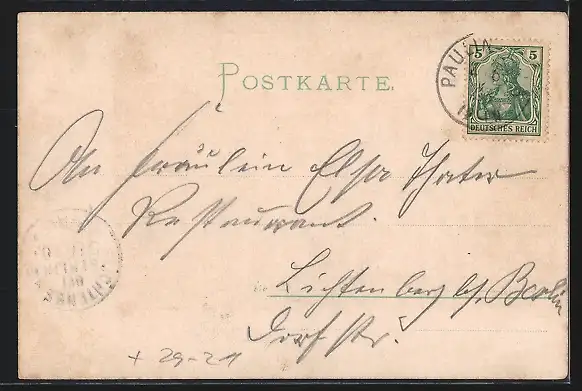 POSTKARTE.
5 5
DEUTSCHES REICH
PAULIN
An Fräulein Elsa Thater
Restaurant.
Lichtenberg b/ Berlin
Dorfstr.
+ 29-21